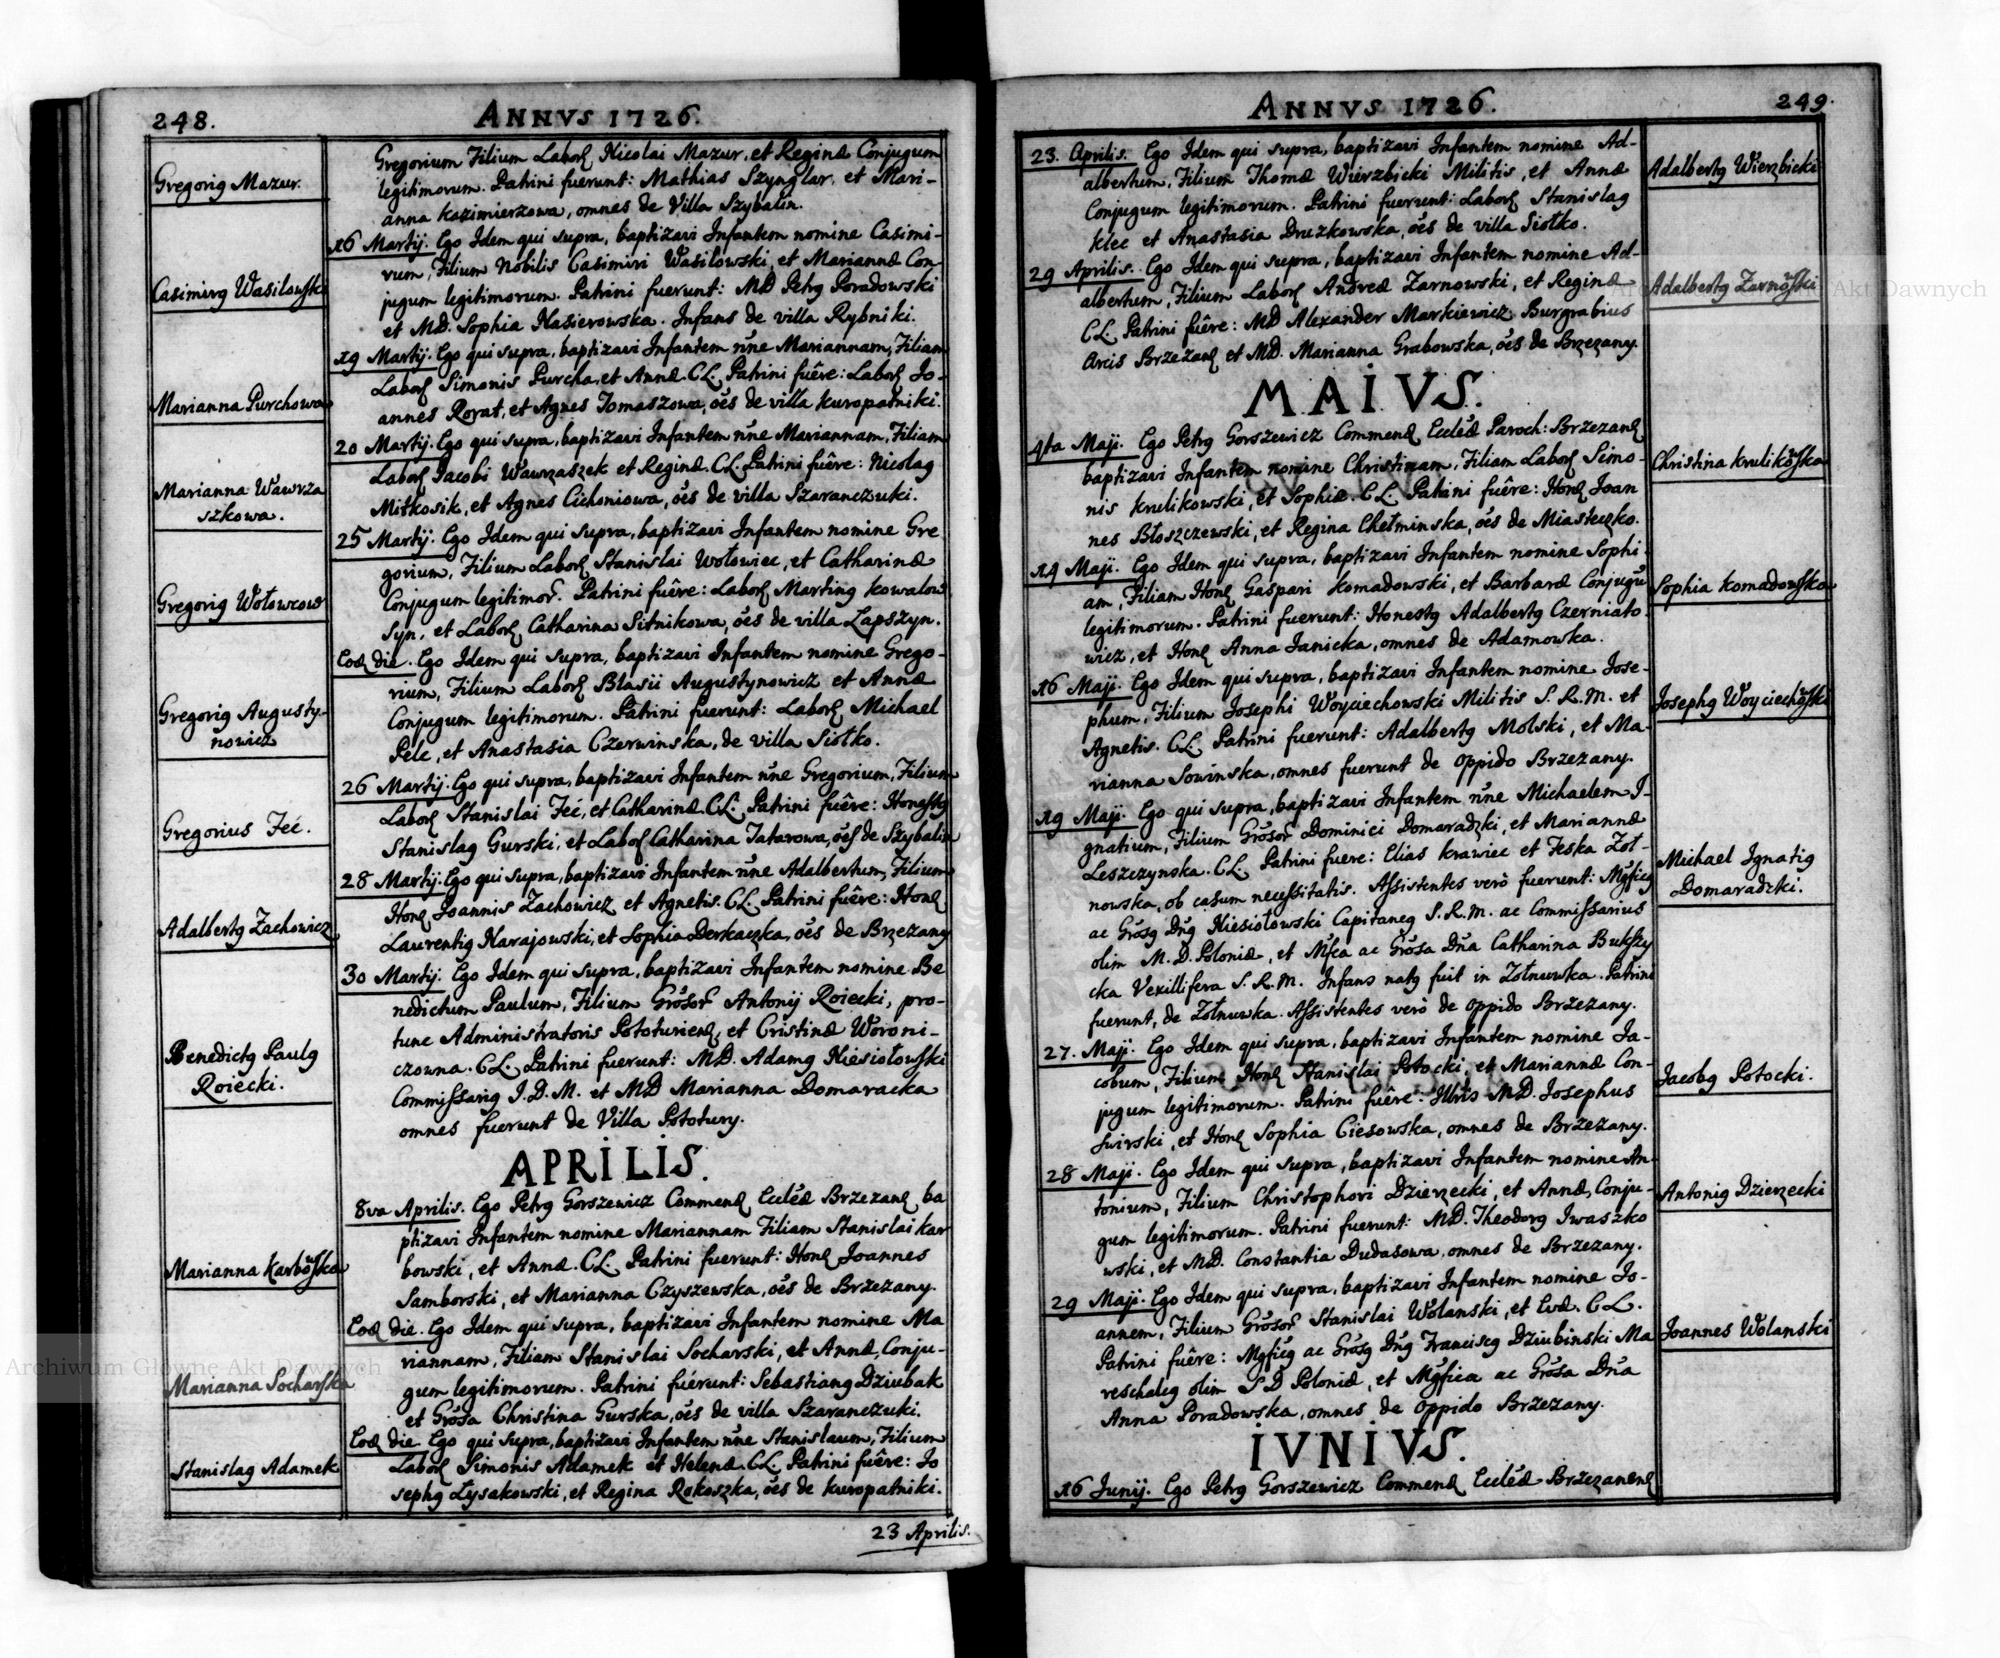 248.
ANNVS 1726.
Gregorig Mazur.
Gregorium Filium Labor Nicolai Mazur, et Reginæ Conjugum
legitimorum. Patrini fuerunt: Mathias Szynglar, et Mari-
anna Kazimierzowa, omnes de Villa Szybalin.
Casimirg Wasilowski
16 Martij. Ego Idem qui supra, baptizavi Infantem nomine Casimi-
rum, Filium Nobilis Casimiri Wasilowski, et Mariannæ Con-
jugum legitimorum. Patrini fuerunt: MD Petrg Poradowski
et MD. Sophia Nasierowska. Infans de villa Rybniki.
Marianna Purchowa
19 Martij. Ego qui supra, baptizavi Infantem nñe Mariannam, Filiam
Labor Simonis Purcha, et Annæ. CL. Patrini fuêre: Labor Jo-
annes Rorat, et Agnes Tomaszowa, oẽs de villa Kuropatniki.
Marianna Wawrza
szkowa.
20 Martij. Ego qui supra, baptizavi Infantem nñe Mariannam, Filiam
Labor Jacobi Wawrzaszek et Reginæ. CL. Patrini fuêre: Nicolag
Mitkosik, et Agnes Cichoniowa, oẽs de villa Szaranczuki.
Gregorig Wołowcow
25 Martij. Ego Idem qui supra, baptizavi Infantem nomine Gre
gorium, Filium Labor Stanislai Wołowiec, et Catharinæ
Conjugum legitimor. Patrini fuêre: Labor Marting Kowalow
Syn, et Labor Catharina Sitnikowa, oẽs de villa Łapszyn.
Gregorig Augusty-
nowicz
Eod die. Ego Idem qui supra, baptizavi Infantem nomine Grego-
rium, Filium Labor Blasii Augustynowicz et Annæ
Conjugum legitimorum. Patrini fuerunt: Labor Michael
Pelc, et Anastasia Czerwinska, de villa Siołko.
Gregorius Feć.
26 Martij. Ego qui supra, baptizavi Infantem nñe Gregorium, Filium
Labor Stanislai Feć, et Catharinæ. CL. Patrini fuêre: Honestg
Stanislag Gurski, et Labor Catharina Tatarowa, oẽs de Szybalin
Adalbertg Zachowicz
28 Martij. Ego qui supra, baptizavi Infantem nñe Adalbertum, Filium
Hon Joannis Zachowicz et Agnetis. CL. Patrini fuêre: Hon
Laurentig Narajowski, et Sophia Derkaczka, oẽs de Brzezany
Benedictg Paulg
Roiecki.
30 Martij. Ego Idem qui supra, baptizavi Infantem nomine Be
nedictum Paulum, Filium Grõsor Antonij Roiecki, pro-
tunc Administratoris Pototuriens, et Cristinæ Woroni-
czowna. CL. Patrini fuerunt: MD. Adamg Niesiołowski
Commissarig J. D. M. et MD Marianna Domaracka
omnes fuerunt de Villa Pototury.
APRILIS.
Marianna Karbowska
8va Aprilis. Ego Petrg Gorszewicz Commend Eccleæ Brzezan ba
ptizavi Infantem nomine Mariannam Filiam Stanislai Kar
bowski, et Annæ. CL. Patrini fuerunt: Hon Joannes
Samborski, et Marianna Czyszewska, oẽs de Brzezany.
Marianna Socharska
Eod die. Ego Idem qui supra, baptizavi Infantem nomine Ma
riannam, Filiam Stanislai Socharski, et Annæ, Conju-
gum legitimorum. Patrini fuerunt: Sebastiang Dziubak
et Grõsa Christina Gurska, oẽs de villa Szaranczuki.
Stanislag Adamek
Eod die. Ego qui supra, baptizavi Infantem nñe Stanislaum, Filium
Labor Simonis Adamek et Helenæ. CL. Patrini fuêre: Jo
sephg Łysakowski, et Regina Rokoszka, oẽs de Kuropatniki.
23 Aprilis.
ANNVS 1726.
249.
23. Aprilis. Ego Idem qui supra, baptizavi Infantem nomine Ad-
albertum, Filium Thomæ Wierzbicki Militis, et Annæ
Conjugum legitimorum. Patrini fuerunt: Labor Stanislag
Klee et Anastasia Druzkowska, oẽs de villa Siołko.
Adalbertg Wierzbicki
29 Aprilis. Ego Idem qui supra, baptizavi Infantem nomine Ad-
albertum, Filium Labor Andreæ Zarnowski, et Reginæ
CL. Patrini fuêre: MD Alexander Markiewicz Burgrabius
Arcis Brzezan et MD. Marianna Grabowska, oẽs de Brzezany.
Adalbertg Zarnowski
MAIVS.
4ta Maji. Ego Petrg Gorszewicz Commend Eccleæ Paroch: Brzezan
baptizavi Infantem nomine Christinam, Filiam Labor Simo-
nis Krulikowski, et Sophiæ. CL. Patrini fuêre: Hon Joan
nes Błoszczewski, et Regina Chełminska, oẽs de Miasteczko.
Christina Krulikowska
14 Maji. Ego Idem qui supra, baptizavi Infantem nomine Sophi-
am, Filiam Hon Gaspari Komadowski, et Barbaræ Conjugũ
legitimorum. Patrini fuerunt: Honestg Adalbertg Czerniato-
wicz, et Hon Anna Janicka, omnes de Adamowka.
Sophia Komadowska
16 Maji. Ego Idem qui supra, baptizavi Infantem nomine Jose-
phum, Filium Josephi Woyciechowski Militis S. R. M. et
Agnetis. CL. Patrini fuerunt: Adalbertg Molski, et Ma-
rianna Sowinska, omnes fuerunt de Oppido Brzezany.
Josephg Woyciechowski
19 Maji. Ego qui supra, baptizavi Infantem nñe Michaelem I-
gnatium, Filium Grõsor Dominici Domaradzki, et Mariannæ
Leszczynska. CL. Patrini fuere: Elias Krawiec et Feska Żoł-
nowska, ob casum necessitatis. Assistentes verò fuerunt: Mgficg
ac Grõsg Dñg Niesiołowski Capitaneg S. R. M. ac Commissarius
olim M. D. Poloniæ, et Mfca ac Grõsa Dña Catharina Bukszy
cka Vexillifera S. R. M. Infans natg fuit in Żołnuwka. Patrini
fuerunt, de Żołnuwka. Assistentes verò de Oppido Brzezany.
Michael Ignatig
Domaradzki.
27. Maji. Ego Idem qui supra, baptizavi Infantem nomine Ja-
cobum, Filium Hon Stanislai Potocki, et Mariannæ Con-
jugum legitimorum. Patrini fuêre: Illris MD. Josephus
Swirski, et Hon Sophia Ciesowska, omnes de Brzezany.
Jacobg Potocki.
28 Maji. Ego Idem qui supra, baptizavi Infantem nomine An-
tonium, Filium Christophori Dzierzecki, et Annæ, Conju-
gum legitimorum. Patrini fuerunt: MD. Theodorg Iwaszko
wski, et MD. Constantia Dudasowa, omnes de Brzezany.
Antonig Dzierzecki
29 Maji. Ego Idem qui supra, baptizavi Infantem nomine Jo-
annem, Filium Grõsor Stanislai Wolanski, et Evæ. CL.
Patrini fuêre: Mgficg ac Grõsg Dñg Franciscg Dziubinski Ma
reschalcg olim S D Poloniæ, et Mgfica ac Grõsa Dña
Anna Poradowska, omnes de Oppido Brzezany.
Joannes Wolanski
IVNIVS.
16 Junij. Ego Petrg Gorszewicz Commend Eccleæ Brzezanen
Archiwum Główne Akt Dawnych
Archiwum Główne Akt Dawnych